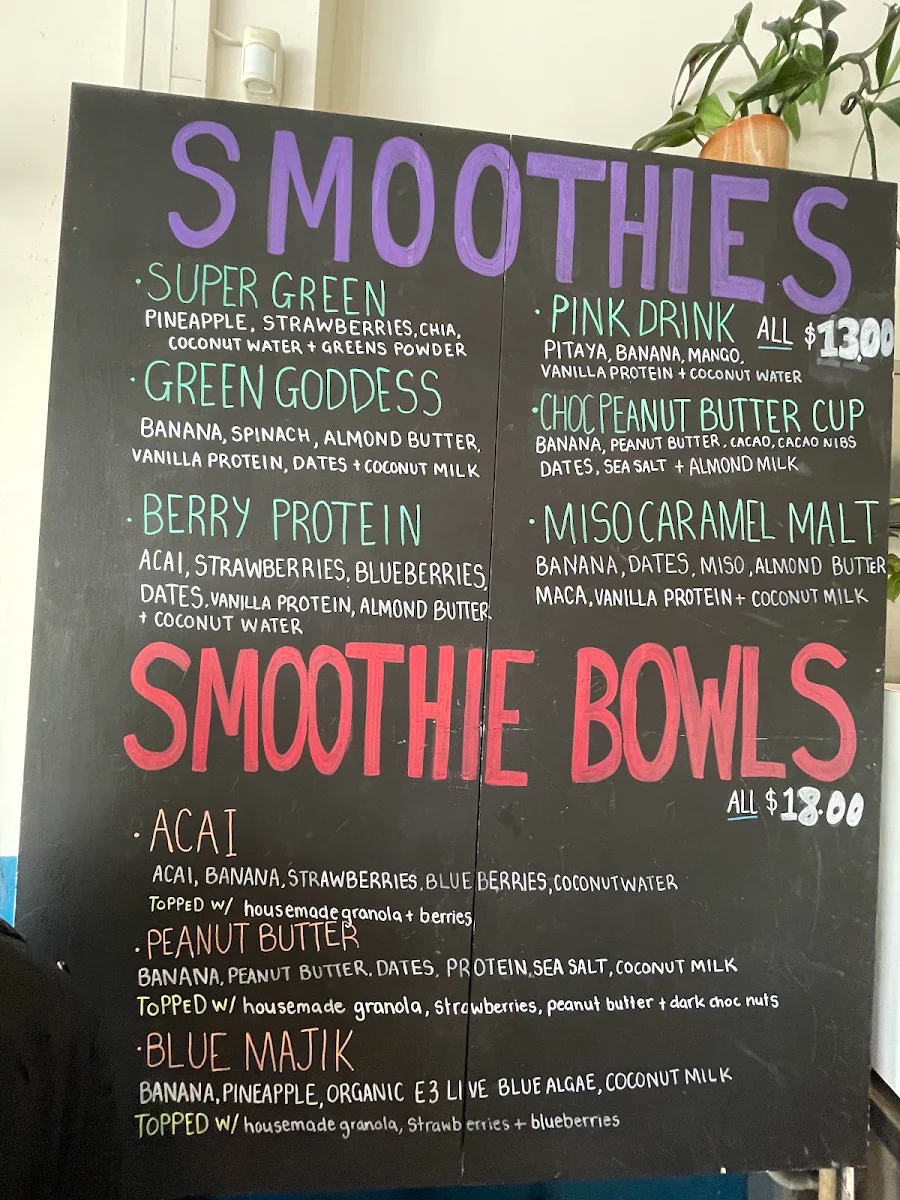 SMOOTHIES
· SUPER GREEN
PINEAPPLE, STRAWBERRIES, CHIA,
COCONUT WATER + GREENS POWDER
· GREEN GODDESS
BANANA, SPINACH, ALMOND BUTTER,
VANILLA PROTEIN, DATES + COCONUT MILK
· BERRY PROTEIN
ACAI, STRAWBERRIES, BLUEBERRIES,
DATES, VANILLA PROTEIN, ALMOND BUTTER
+ COCONUT WATER
· PINK DRINK
ALL $13.00
PITAYA, BANANA, MANGO,
VANILLA PROTEIN + COCONUT WATER
· CHOC PEANUT BUTTER CUP
BANANA, PEANUT BUTTER, CACAO, CACAO NIBS
DATES, SEA SALT + ALMOND MILK
· MISO CARAMEL MALT
BANANA, DATES, MISO, ALMOND BUTTER
MACA, VANILLA PROTEIN + COCONUT MILK
SMOOTHIE BOWLS
ALL $18.00
· ACAI
ACAI, BANANA, STRAWBERRIES, BLUEBERRIES, COCONUT WATER
TOPPED W/ housemade granola + berries
· PEANUT BUTTER
BANANA, PEANUT BUTTER, DATES, PROTEIN, SEA SALT, COCONUT MILK
TOPPED W/ housemade granola, strawberries, peanut butter + dark choc nuts
· BLUE MAJIK
BANANA, PINEAPPLE, ORGANIC E3 LIVE BLUE ALGAE, COCONUT MILK
TOPPED W/ housemade granola, strawberries + blueberries